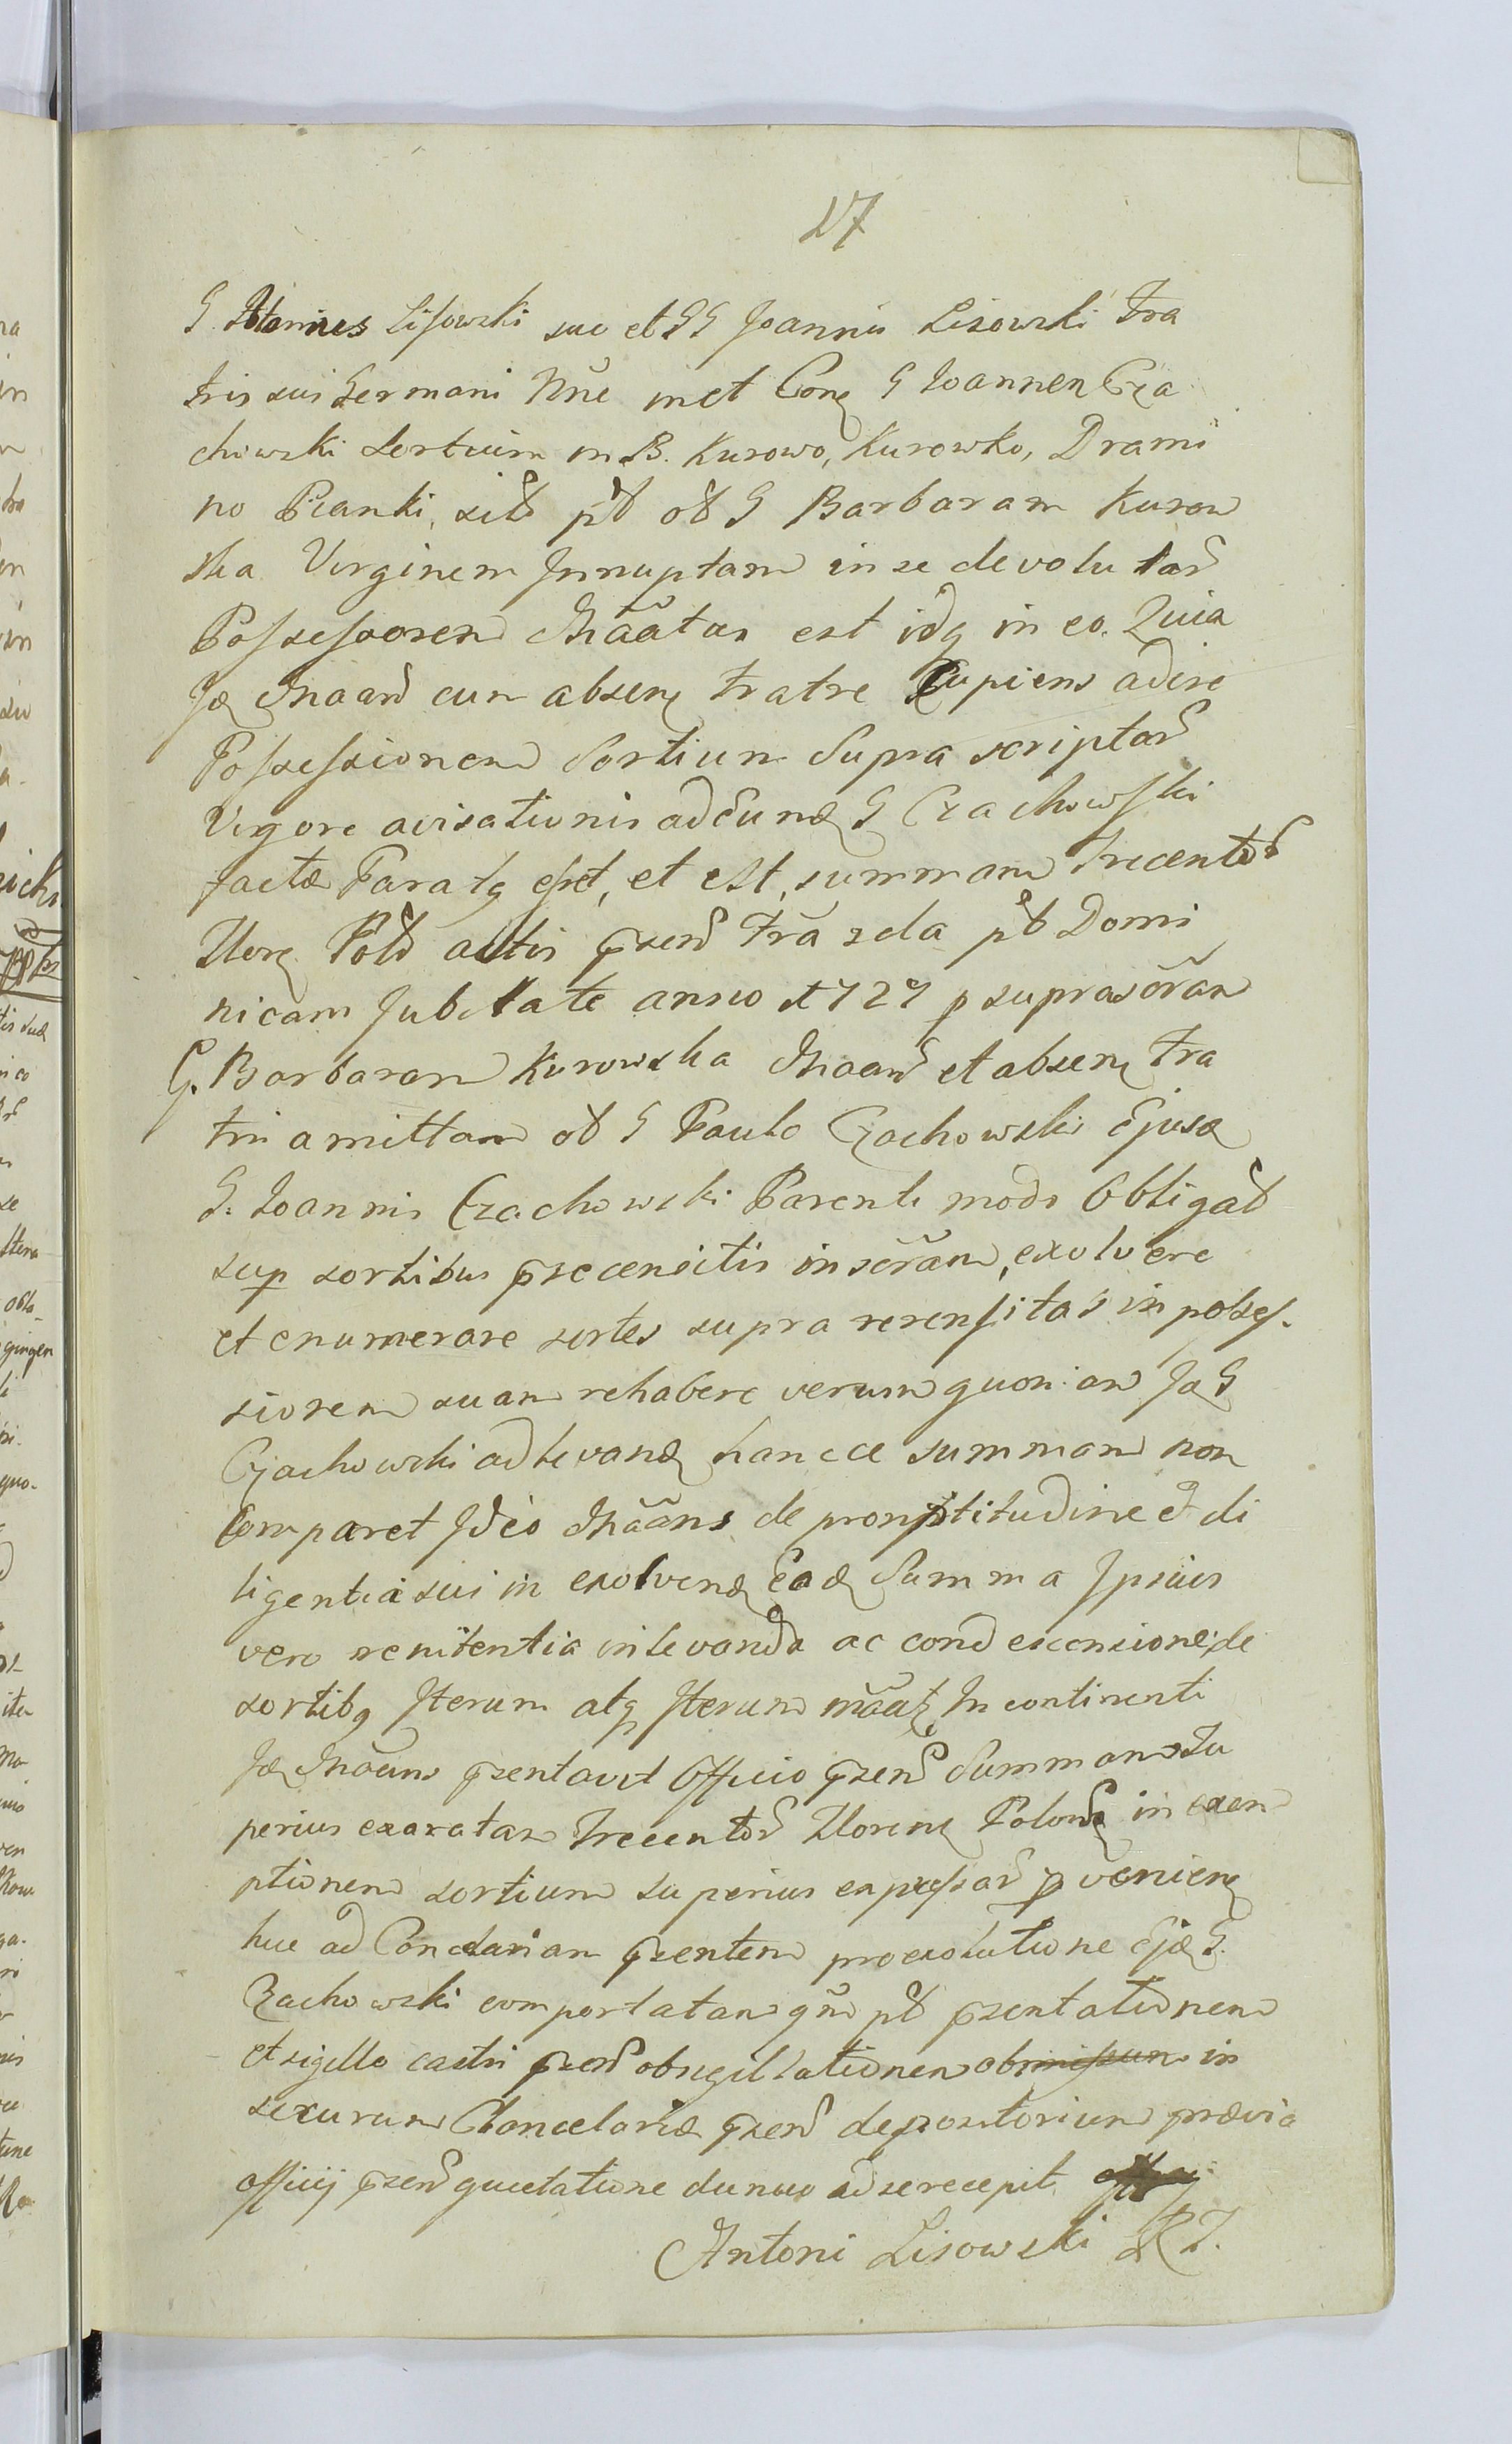 27
G. Antonius Lisowski suo et GG Joannis Lisowski Fra
tris sui Germani Nne met Cong G Joannen Cza
chowski Sortium in B. Kurowo, Kurowko, Drami
no Pianki, sitt ptt ob G Barbaram Kurow
ska Virginem Innuptam in se devolutar
Possessorem Maãtas est idq in eo. Quia
Jd Maans cum absen fratre Cupiens adire
Possessionem Sortium Supra scriptar
Vigore avisationis ad eund G Czachowski
factæ Paratq esset, et est, summam trecentor
flore Pold actis prsen Fra 2da ptt Domi
nicam Jubilate anno 1727 p suprascram
G. Barbaram Kurowska Maan et absen Fra
tri amittam ob G Paulo Czachowski Ejusd
G. Joannis Czachowski Parente modo Obligat
sup sortibus precensitis inscram, exolvere
et enumerare sortes supra recensitas in posses-
sionem suam rehabere verum quoniam Jd G
Czachowski ad levand hance summam non
Comparet Jdeo Maans de promptitudine et di
ligentia sui in exolvend Ead Summa Ipsius
vero renitentia in levanda ac condescensione de
sortibq Iterum atq Iterum maatq In continenti
Jd Maans prsentavit Officio prsen Summam Su
perius exaratam Trecentor Floren Polon in exem
ptionem sortium superius expressar p venien
huc ad Cancelariam prsentem pro exolutione Ejd G.
Czachowski comportatam qm ptt prsentationem
et sigillo castri prsen obsigillationem in
securum Chancelariæ prsen depositorium prævia
officij prsen quietatione denuo ad se recepit
Antoni Lisowski